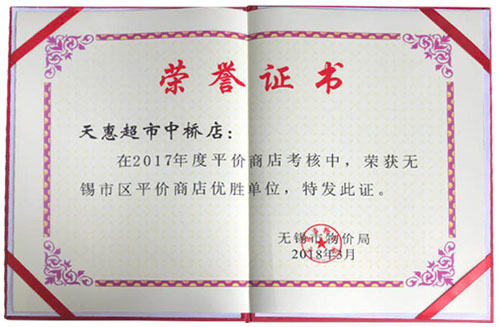 荣誉证书
天惠超市中桥店：
在2017年度平价商店考核中，荣获无
锡市区平价商店优胜单位，特发此证。
无锡市物价局
2018年3月